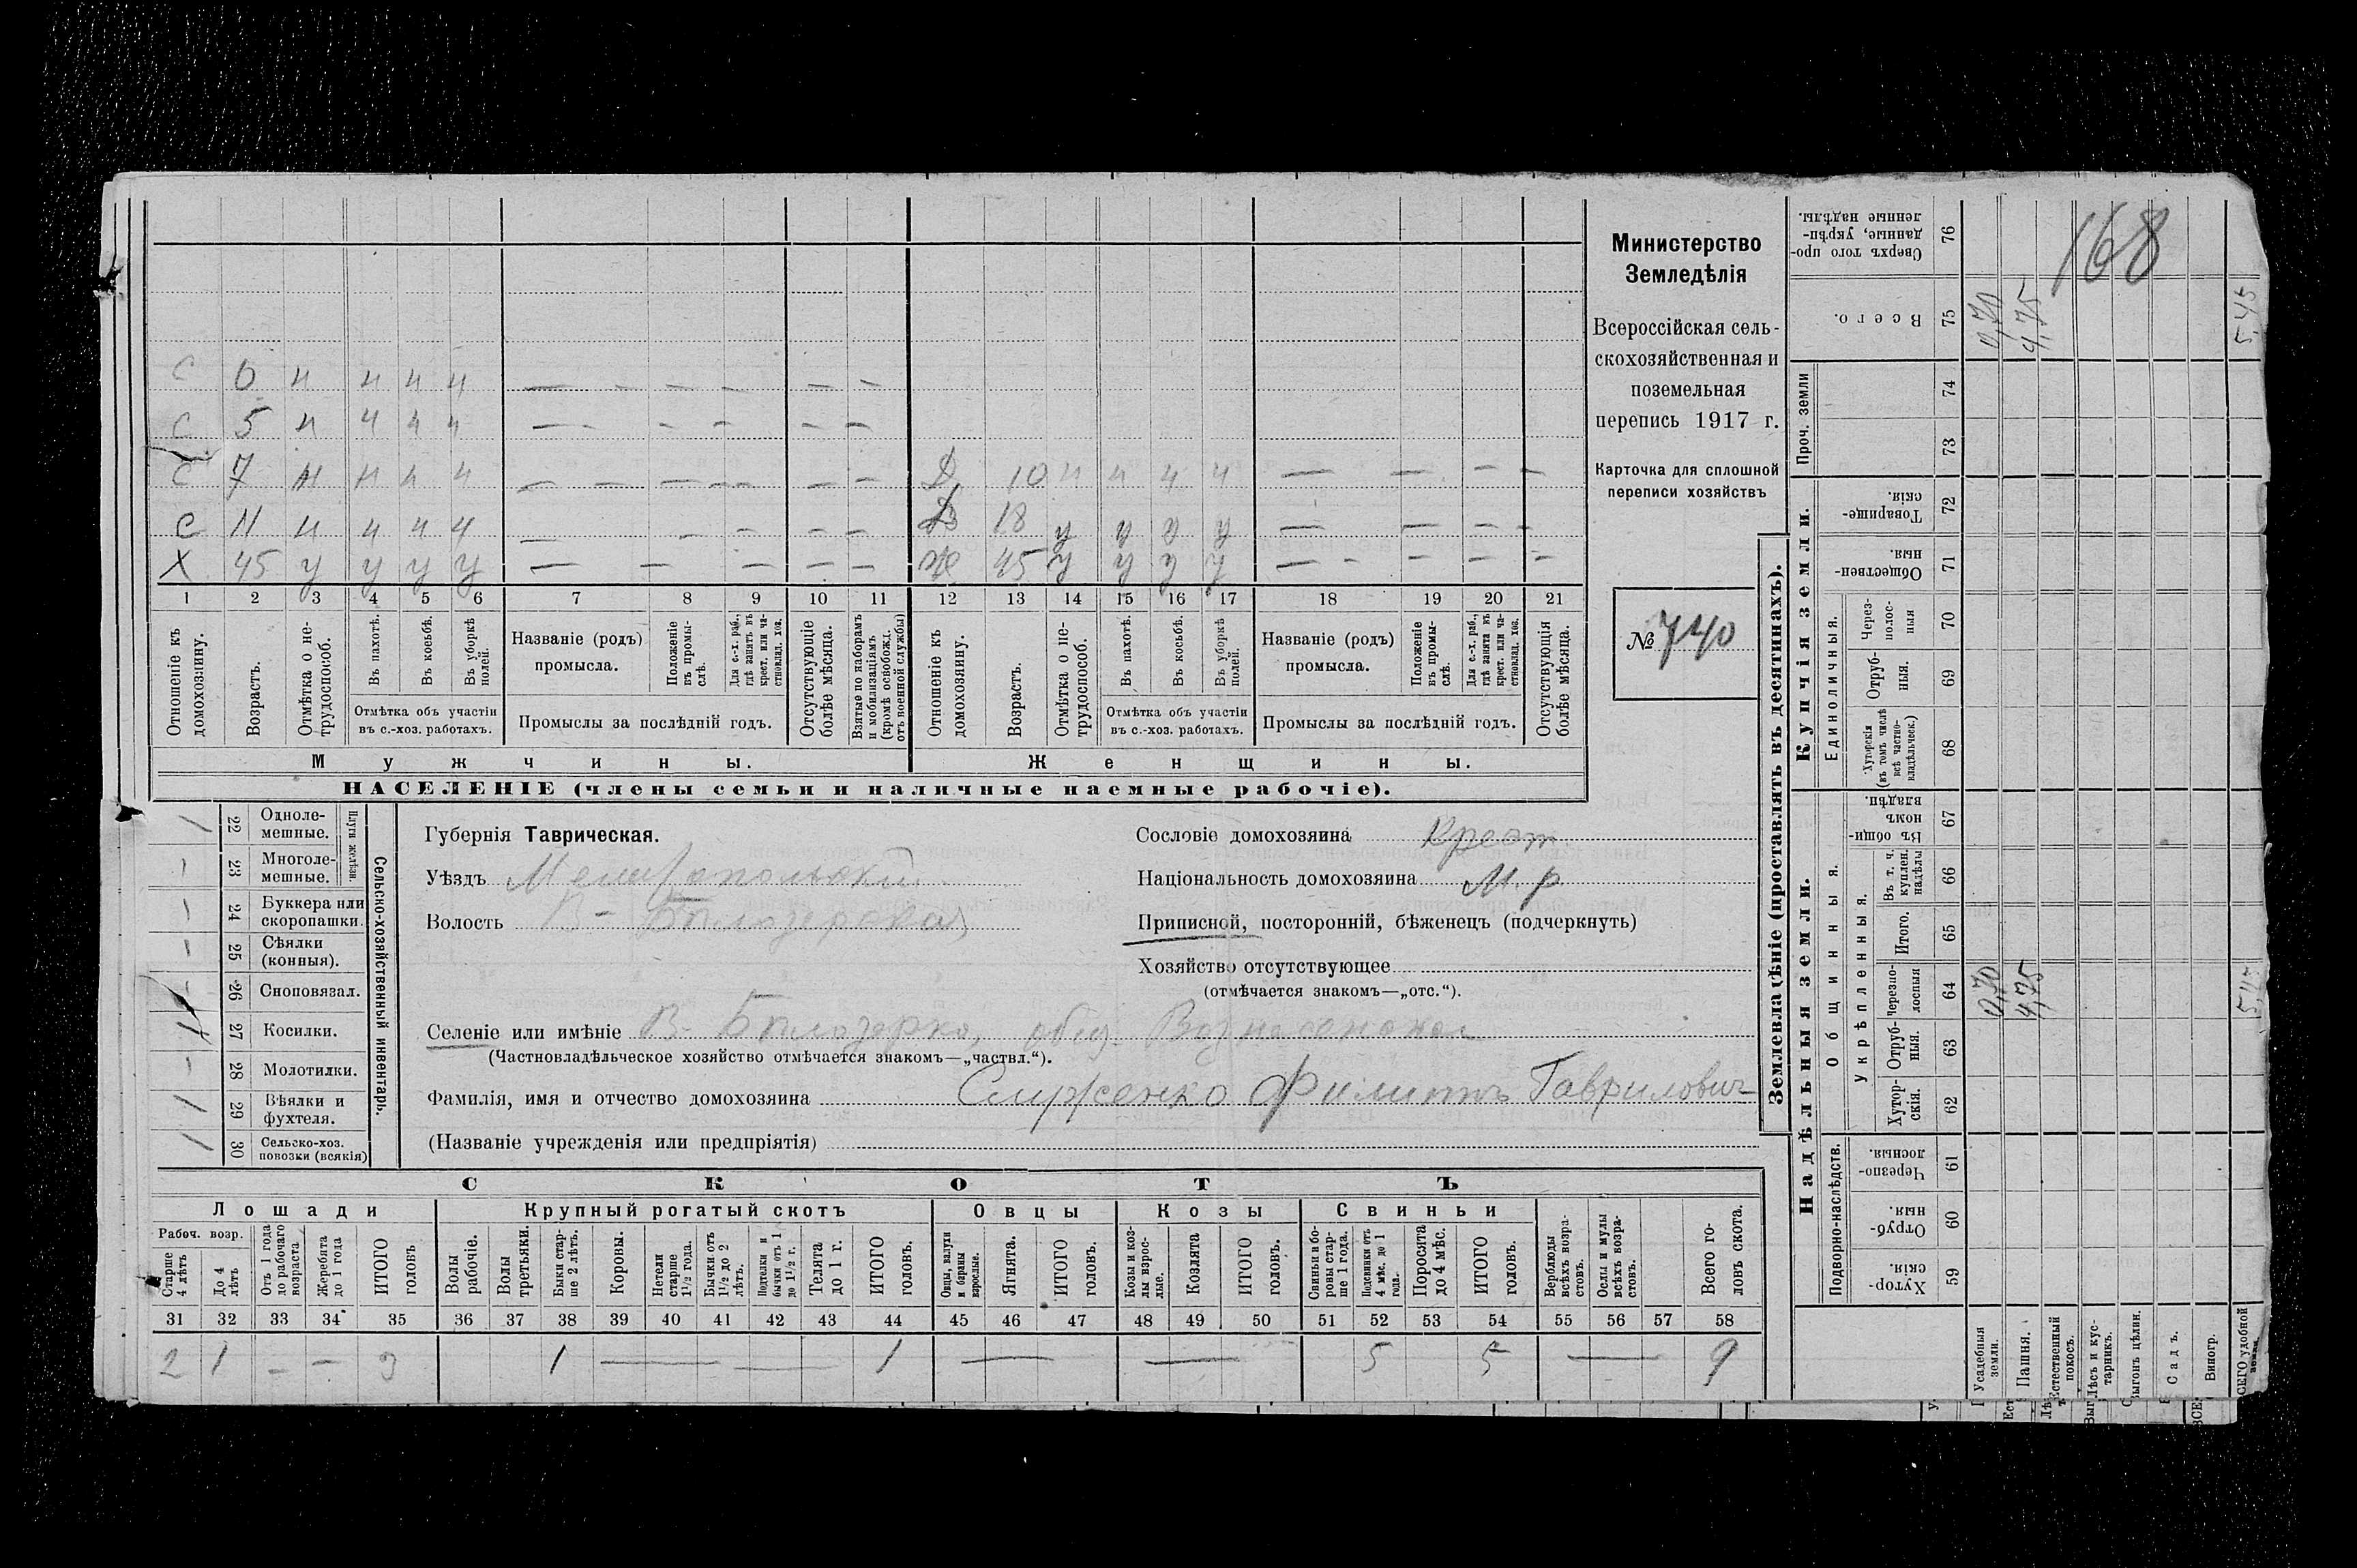 С 6 н н н н — — — — — —
С 5 н н н н — — — — — —
С 7 н н н н — — — — — — Д 10 н н н н — — — —
С 11 н н н н — — — — — Д 18 у у у у — — — —
Х 45 у у у у — — — — — Ж 45 у у у у — — — — —
1 2 3 4 5 6 7 8 9 10 11 12 13 14 15 16 17 18 19 20 21
Отношеніе къ домохозяину.
Возрастъ.
Отмѣтка о нетрудоспособ.
Въ пахотѣ.
Въ косьбѣ.
Въ уборкѣ полей.
Отмѣтка объ участіи
въ с.-хоз. работахъ.
Названіе (родъ)
промысла.
Положеніе въ промыслѣ.
Для с.-х. раб., гдѣ занятъ въ крест. или частновлад. хоз.
Промыслы за послѣдній годъ.
Отсутствующіе болѣе мѣсяца.
Взятые по наборамъ и мобилизаціямъ (кромѣ освобожд. отъ военной службы)
Отношеніе къ домохозяину.
Возрастъ.
Отмѣтка о нетрудоспособ.
Въ пахотѣ.
Въ косьбѣ.
Въ уборкѣ полей.
Отмѣтка объ участіи
въ с.-хоз. работахъ.
Названіе (родъ)
промысла.
Положеніе въ промыслѣ.
Для с.-х. раб., гдѣ занята въ крест. или частновлад. хоз.
Промыслы за послѣдній годъ.
Отсутствующія болѣе мѣсяца.
Мужчины. Женщины.
НАСЕЛЕНІЕ (члены семьи и наличные наемные рабочіе).
Министерство
Земледѣлія
Всероссійская сель-
скохозяйственная и
поземельная
перепись 1917 г.
Карточка для сплошной
переписи хозяйствъ
№ 740
Губернія Таврическая.
Уѣздъ Мелитопольскій
Волость В-Бѣлозерская
Сословіе домохозяина Крест
Національность домохозяина М.р
Приписной, посторонній, бѣженецъ (подчеркнуть)
Хозяйство отсутствующее
(отмѣчается знакомъ—„отс.“).
Селеніе или имѣніе В-Бѣлозерка, общ. Вознесенская
(Частновладѣльческое хозяйство отмѣчается знакомъ—„частвл.“).
Фамилія, имя и отчество домохозяина Филиппъ Гавриловичъ
(Названіе учрежденія или предпріятія)
Сельско-хозяйственный инвентарь.
Плуги желѣзн.
/ 22 Одноле-
мешные.
— 23 Многоле-
мешные.
— 24 Буккера или
скоропашки.
— 25 Сѣялки
(конныя).
— 26 Сноповязал.
1 27 Косилки.
— 28 Молотилки.
/ 29 Вѣялки и
фухтеля.
/ 30 Сельско-хоз.
повозки (всякія)
СКОТЪ
Лошади Крупный рогатый скотъ Овцы Козы Свиньи
Рабоч. возр.
Старше 4 лѣтъ
До 4 лѣтъ
Отъ 1 года до рабочаго возраста
Жеребята до 1 года
ИТОГО головъ
Волы рабочіе.
Волы третьяки.
Быки старше 2 лѣтъ.
Коровы.
Нетели старше 1½ года.
Бычки отъ 1½ до 2 лѣтъ.
Подтелки и бычки отъ 1 до 1½ г.
Телята до 1 г.
ИТОГО головъ.
Овцы, валухи и бараны взрослые.
Ягнята.
ИТОГО головъ.
Козы и козлы взрослые.
Козлята
ИТОГО головъ.
Свиньи и боровы старше 1 года.
Подсвинки отъ 4 мѣс. до 1 года.
Поросята до 4 мѣс.
ИТОГО головъ.
Верблюды всѣхъ возрастовъ.
Ослы и мулы всѣхъ возрастовъ.
Всего головъ скота.
31 32 33 34 35 36 37 38 39 40 41 42 43 44 45 46 47 48 49 50 51 52 53 54 55 56 57 58
2 1 — — 3 1 — — 1 — — 5 5 — 9
Землевладѣніе (проставлять въ десятинахъ).
Купчія земли.
Надѣльныя земли.
Сверхъ того проданные, укрѣпленные надѣлы. 76
Всего. 75 0,70 4,75 5,45
Проч. земли 74 73
Товарищескія. 72
Общественныя. 71
Единоличныя.
Черезполосныя 70
Отрубныя. 69
Хуторскія (въ томъ числѣ всѣ частновладѣльческ.) 68
Общинныя.
Въ общинномъ владѣн. 67
Укрѣпленныя.
Въ т. ч. куплен. надѣлы 66
Итого. 65
Черезполосныя 64 0,70 4,75 5,45
Отрубныя. 63
Хуторскія. 62
Подворно-наслѣдств.
Черезполосныя. 61
Отрубныя. 60
Хуторскія. 59
Усадебныя земли.
Пашня.
Естественный покосъ.
Лѣсъ и кустарникъ.
Выгонъ цѣлин.
Садъ.
Виногр.
ВСЕГО удобной
168